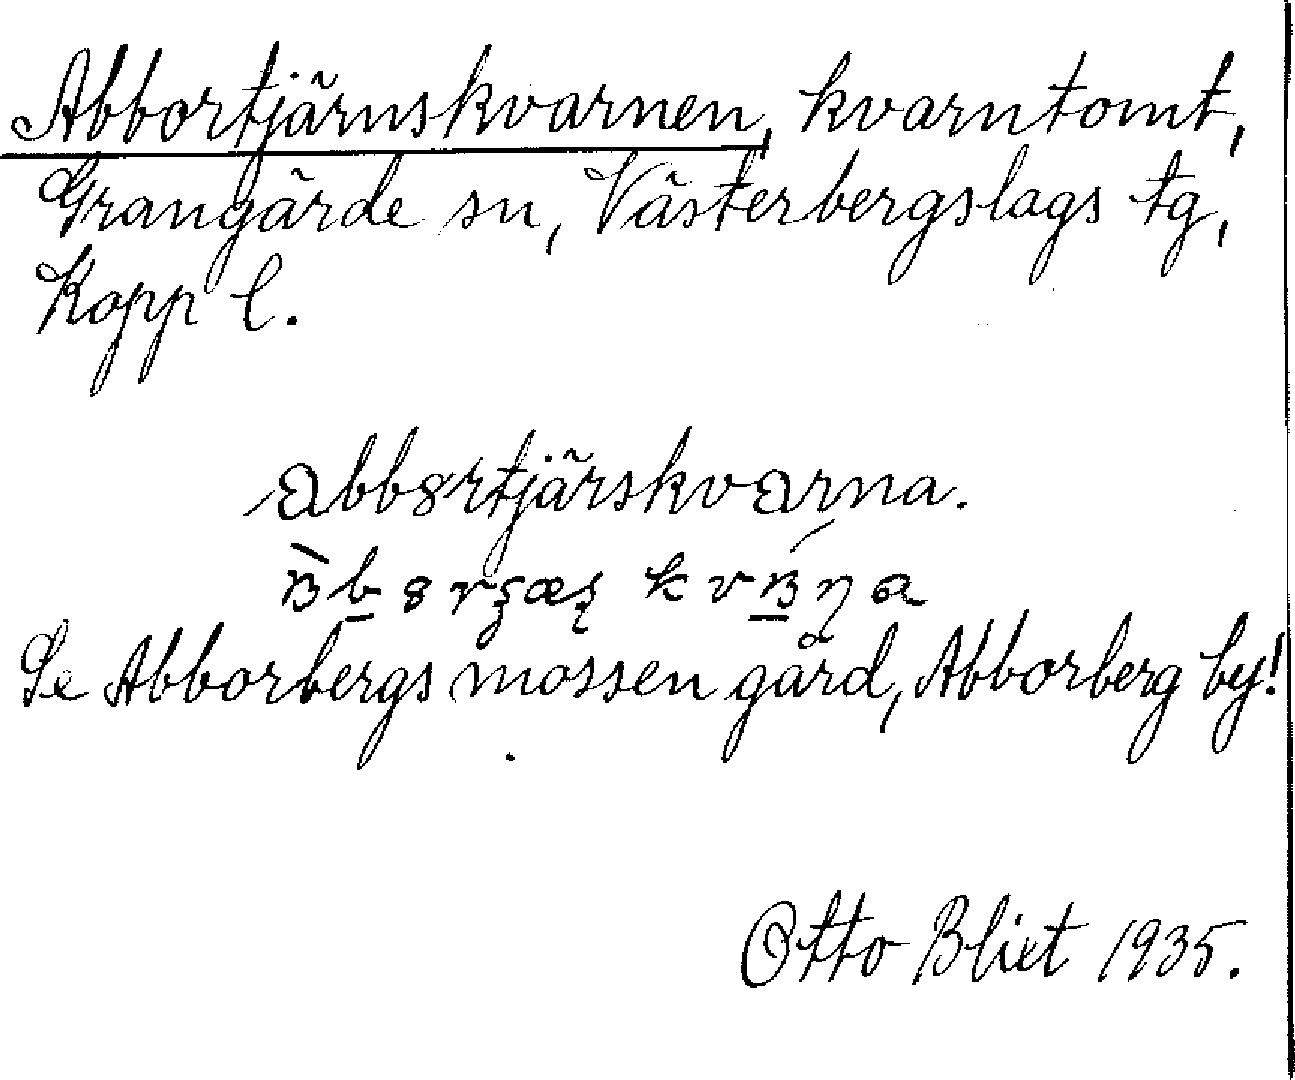 Abbortjärnskvarnen, kvarntomt,
Grangärde sn, Västerbergslags tg,
Kopp l.
abb8rtjärskvarna.
Se Abborbergsmossen gård, Abborberg by!
Otto Blixt 1935.